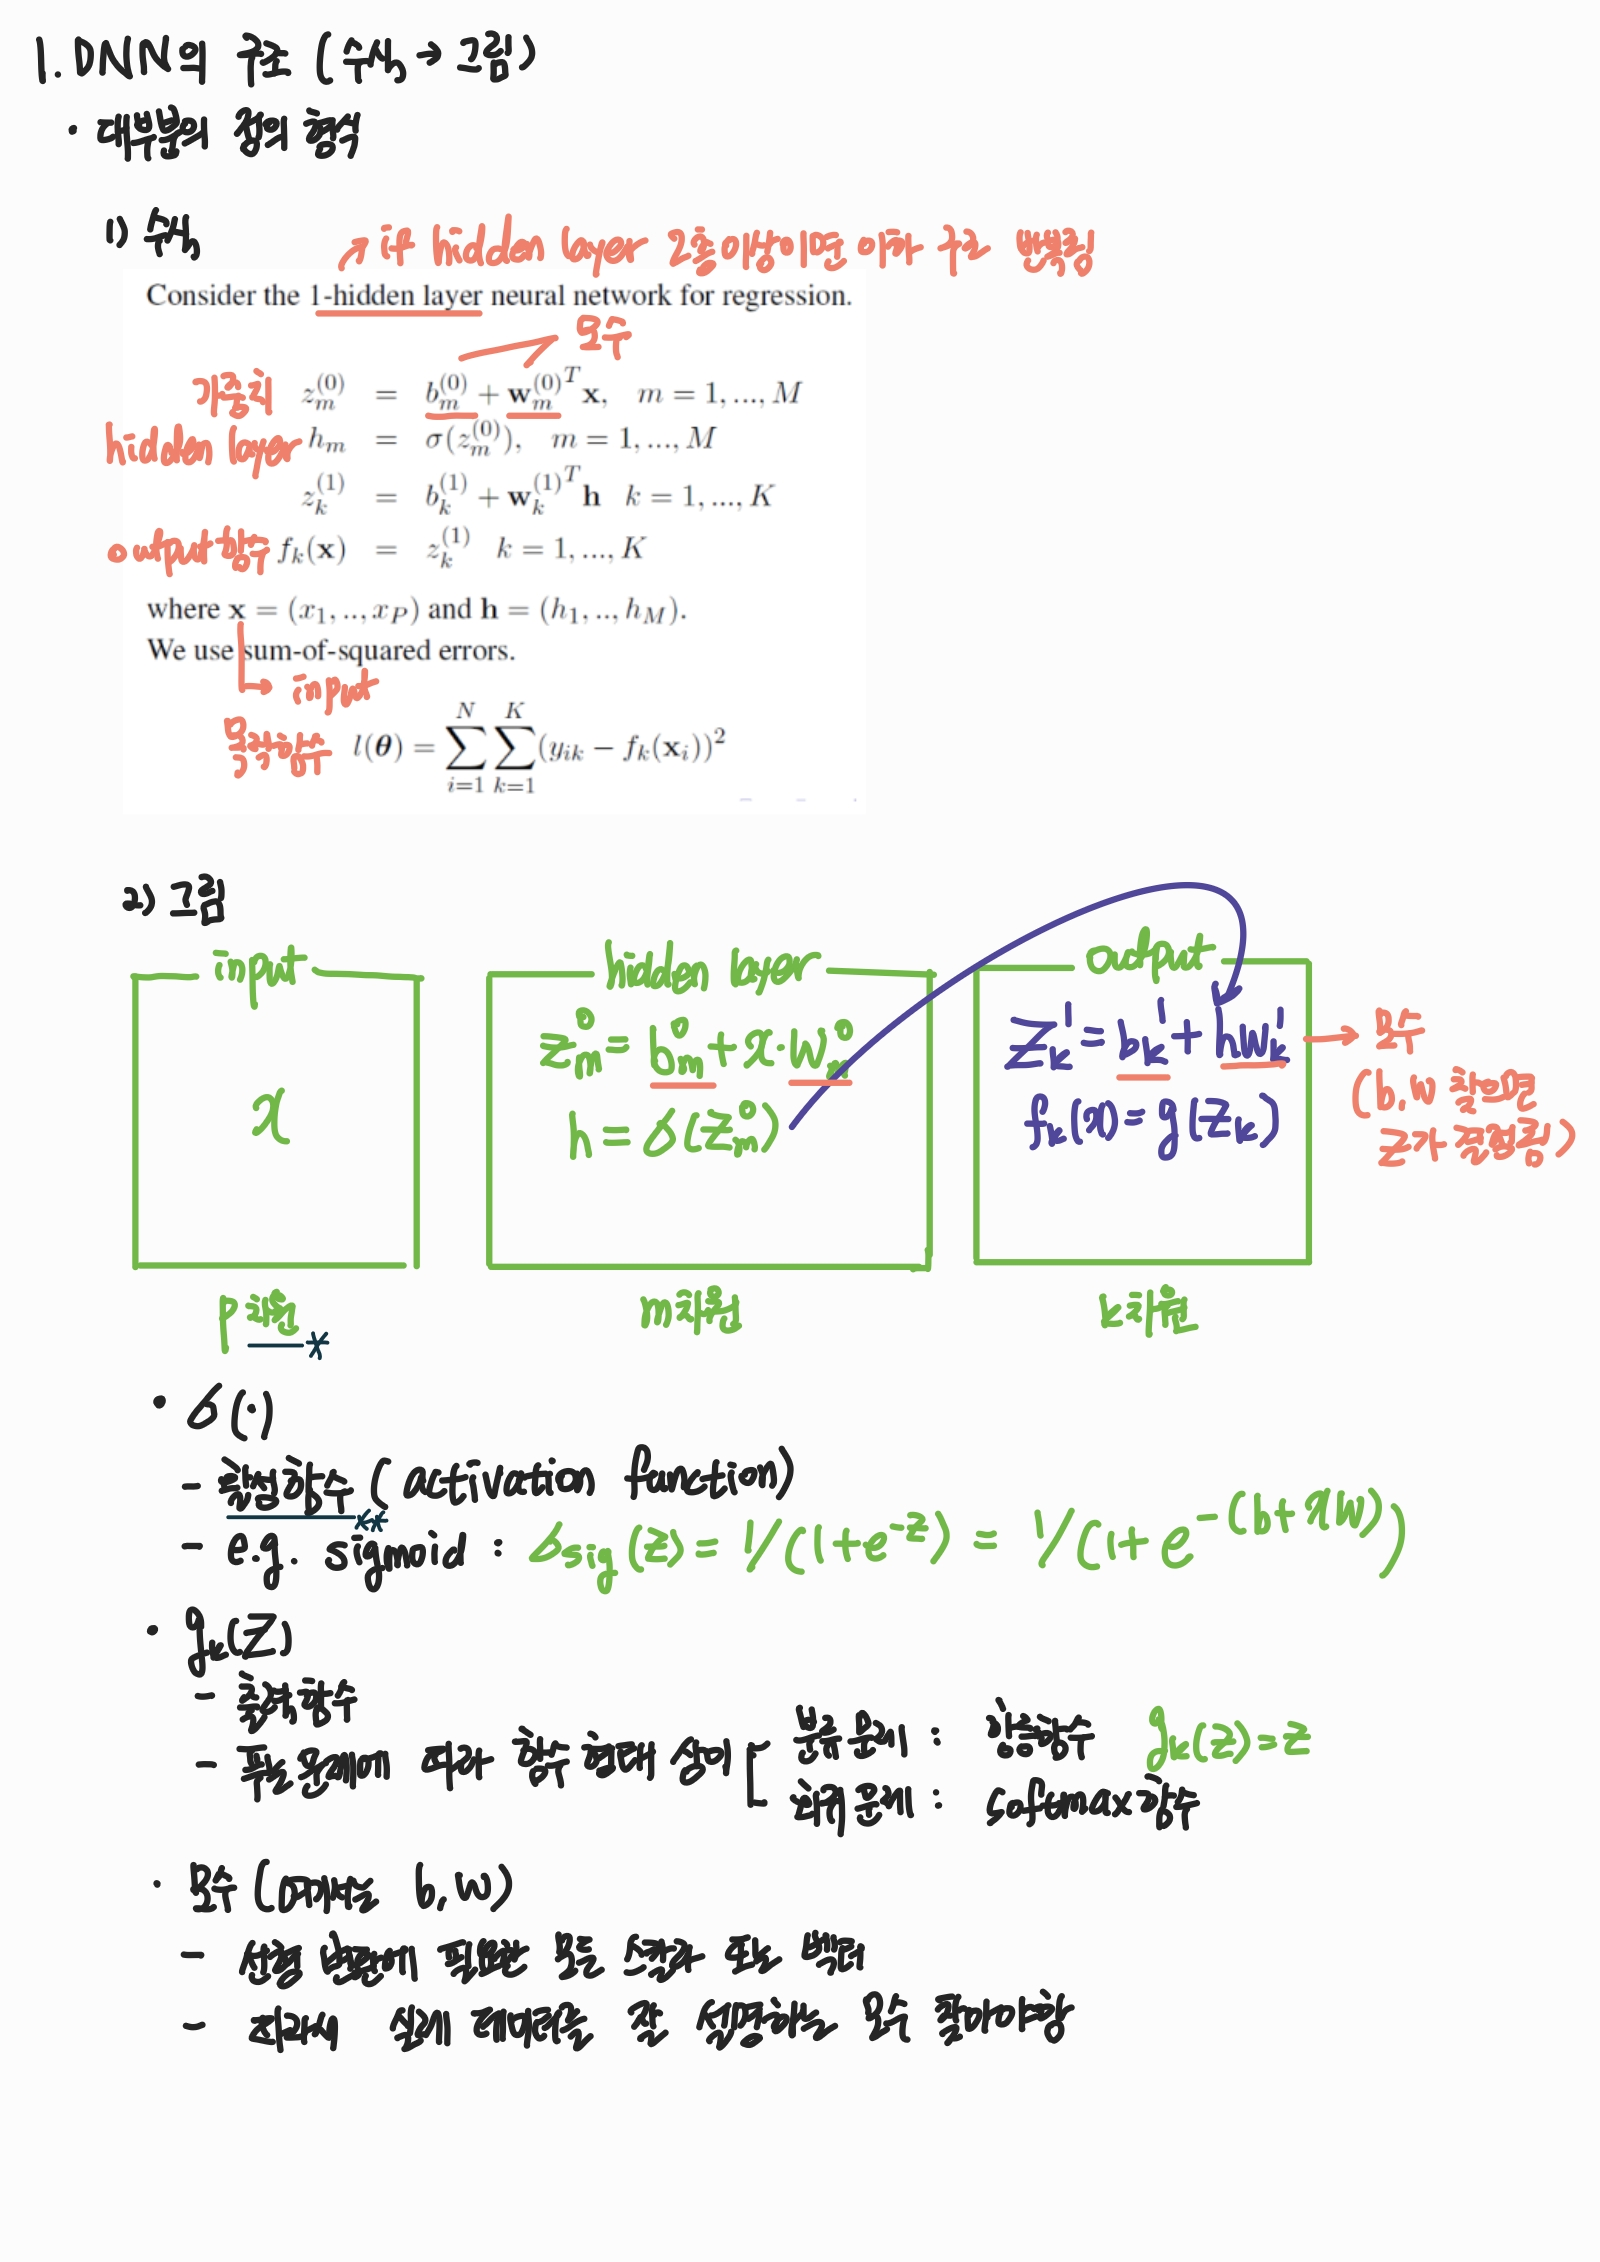 1. DNN의 구조 (수식 → 그림)
· 대부분의 정의 형식
1) 수식
↗ if hidden layer 2층이상이면 이하 구조 반복됨
Consider the 1-hidden layer neural network for regression.
모수
가중치 z_m^(0) = b_m^(0) + w_m^(0)T x, m = 1, ..., M
hidden layer h_m = σ(z_m^(0)), m = 1, ..., M
z_k^(1) = b_k^(1) + w_k^(1)T h k = 1, ..., K
output 함수 f_k(x) = z_k^(1) k = 1, ..., K
where x = (x_1, .., x_P) and h = (h_1, .., h_M).
We use sum-of-squared errors.
→ input
목적함수 l(θ) = Σ_{i=1}^{N} Σ_{k=1}^{K} (y_ik − f_k(x_i))^2
2) 그림
input
x
p 차원 *
hidden layer
z_m^0 = b_m^0 + x·w_m^0
h = σ(z_m^0)
m차원
output
z_k^1 = b_k^1 + hw_k^1
f_k(x) = g(z_k)
k차원
→ 모수
(b, w 찾으면
z가 결정됨)
· σ(·)
- 활성함수 (activation function)
**
- e.g. sigmoid : σ_sig(z) = 1/(1+e^-z) = 1/(1+e^-(b+xw))
· g_k(z)
- 출력함수
- 푸는 문제에 따라 함수 형태 상이
분류 문제 : 항등함수 g_k(z) = z
회귀 문제 : softmax 함수
· 모수 (여기서는 b, w)
- 선형 변환에 필요한 모든 스칼라 또는 벡터
- 따라서 실제 데이터를 잘 설명하는 모수 찾아야함